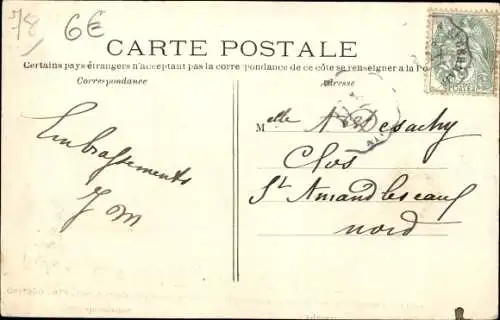 78 6€
CARTE POSTALE
Certains pays étrangers n'acceptant pas la correspondance de ce côté se renseigner à la Pos
Correspondance
Adresse
Embrassements
J M
Melle Desachy
Clos
St Amand les eaux
nord
POSTES